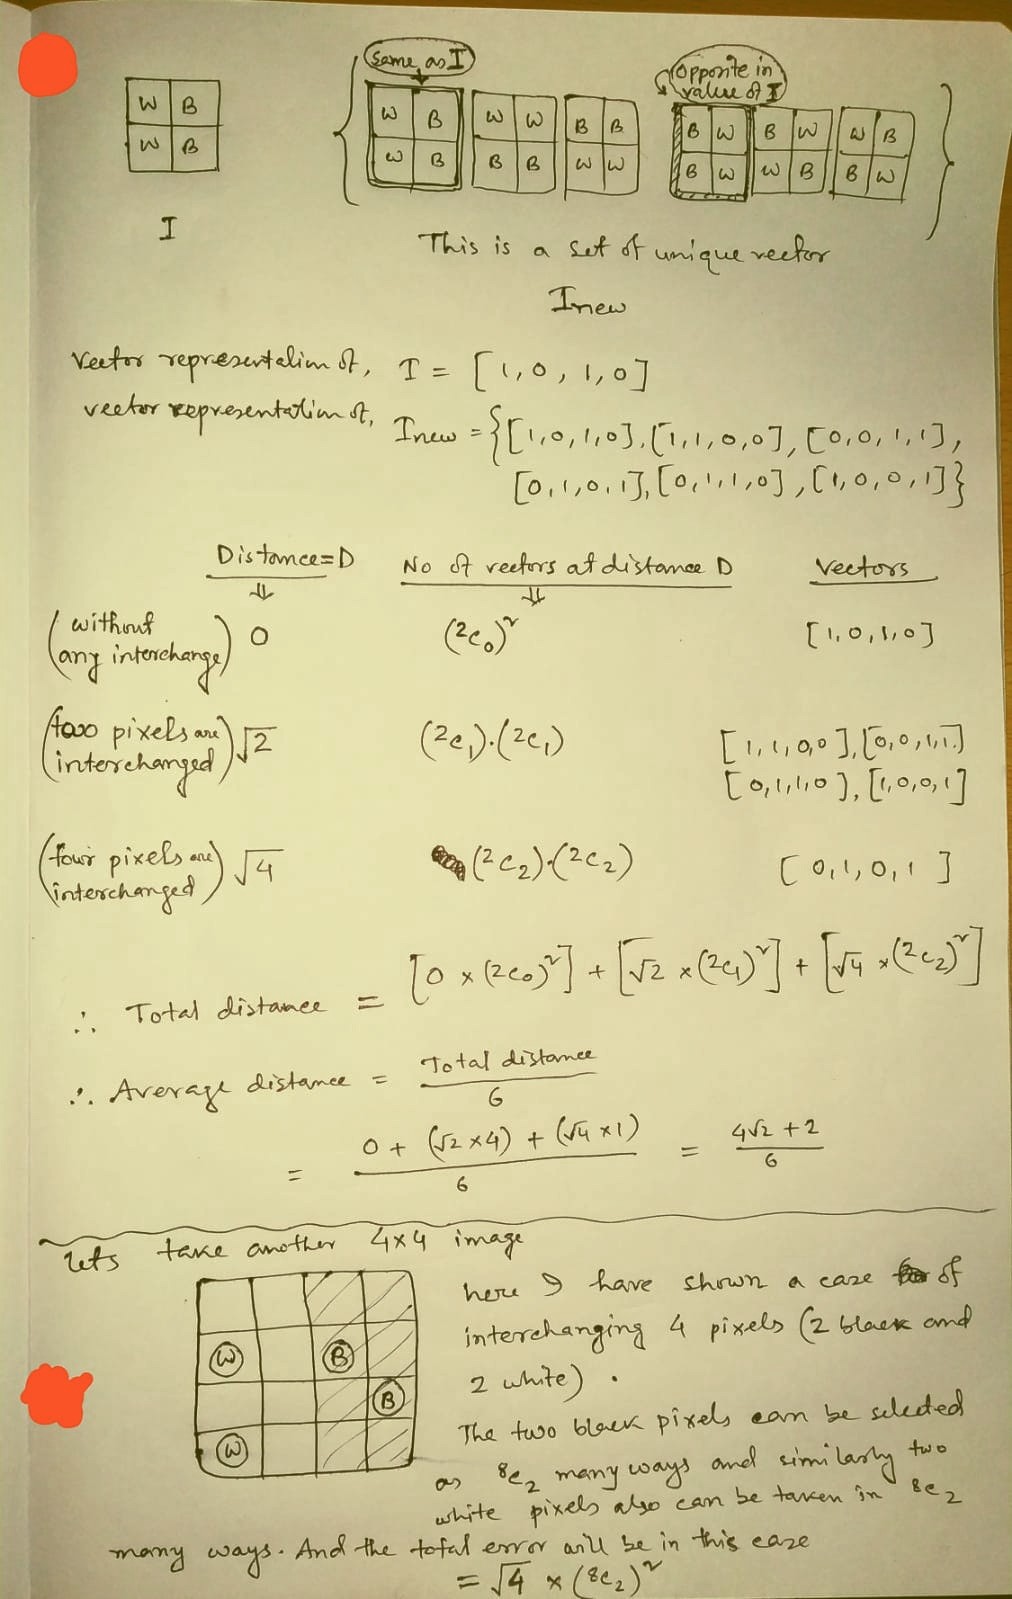 Same as I
Opposite in
value of I
W B W B W W B B B W B W W B
W B W B B B W W B W W B B W
I
This is a set of unique vector
Inew
Vector representation of, I = [1,0,1,0]
vector representation of, Inew = {[1,0,1,0], [1,1,0,0], [0,0,1,1],
[0,1,0,1], [0,1,1,0], [1,0,0,1]}
Distance=D No of vectors at distance D Vectors
⇓ ⇓
(without any interchange) 0 (²C₀)² [1,0,1,0]
(two pixels are interchanged) √2 (²C₁).(²C₁) [1,1,0,0], [0,0,1,1]
[0,1,1,0], [1,0,0,1]
(four pixels are interchanged) √4 (²C₂).(²C₂) [0,1,0,1]
∴ Total distance = [0 × (²C₀)²] + [√2 × (²C₁)²] + [√4 × (²C₂)²]
∴ Average distance = Total distance / 6
= 0 + (√2 × 4) + (√4 × 1) / 6 = 4√2 + 2 / 6
lets take another 4×4 image
here I have shown a case of
interchanging 4 pixels (2 black and
2 white).
W B
B
W
The two black pixels can be selected
as ⁸C₂ many ways and similarly two
white pixels also can be taken in ⁸C₂
many ways. And the total error will be in this case
= √4 × (⁸C₂)²